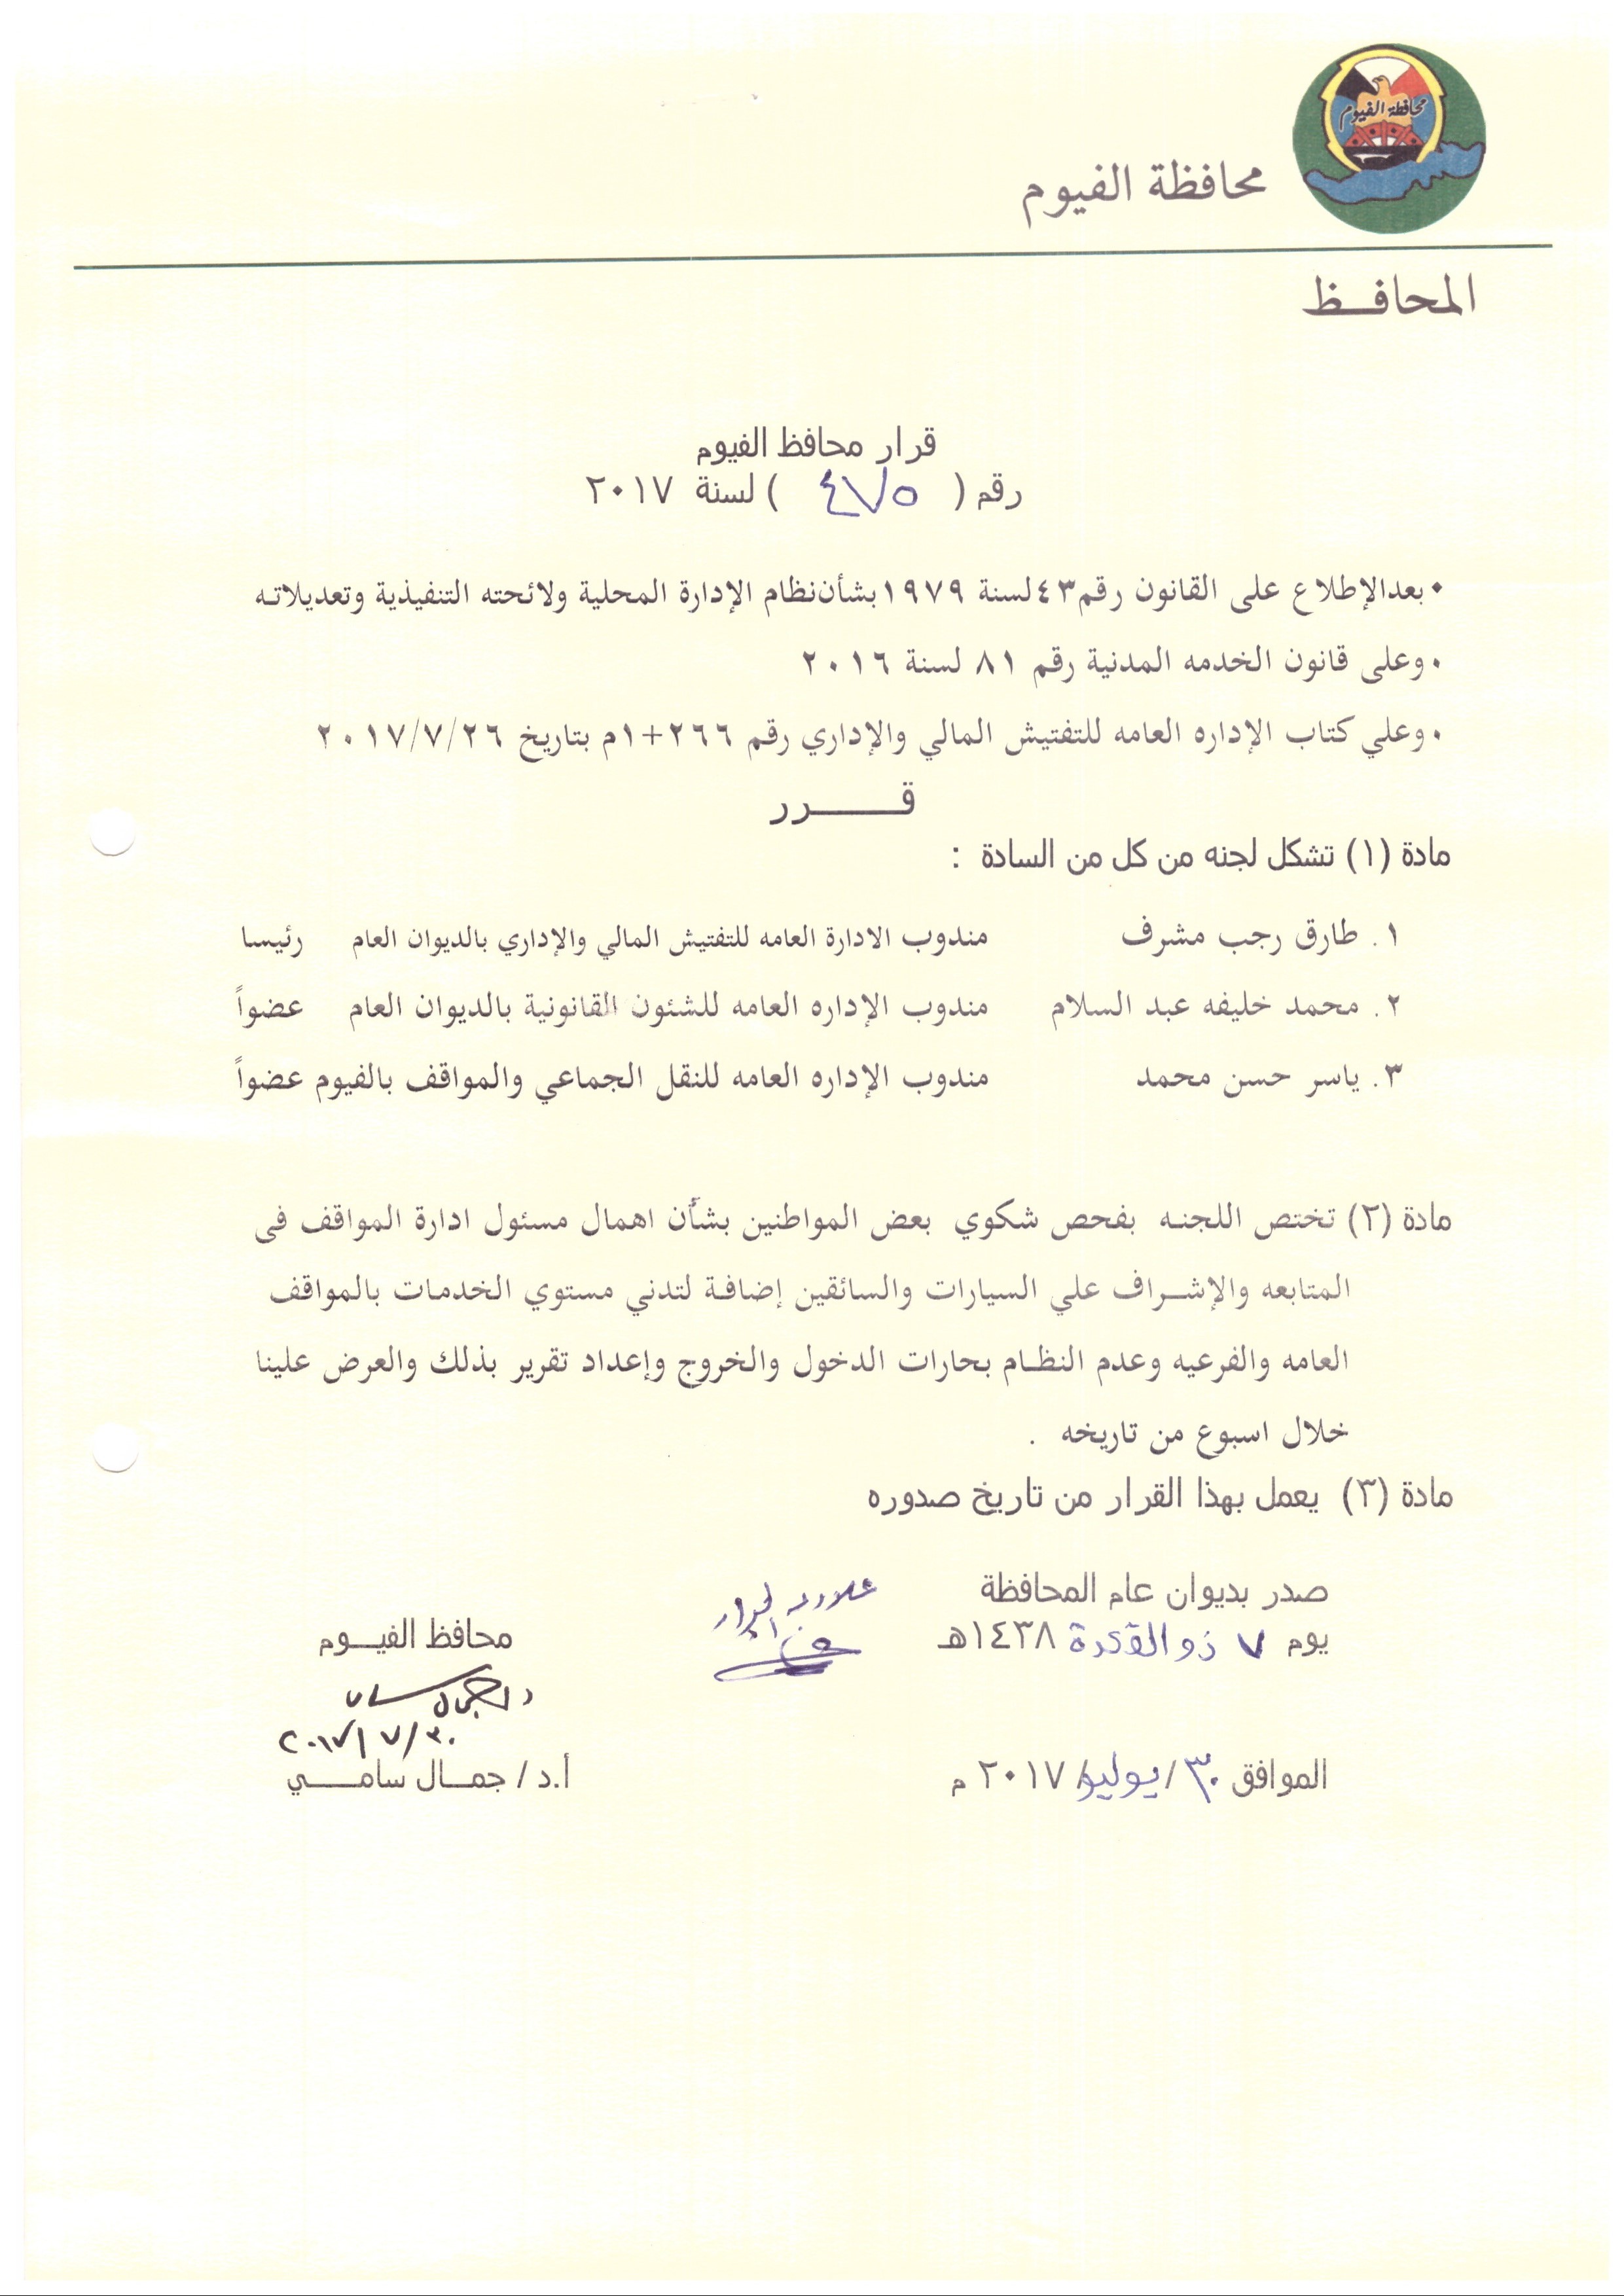 محافظة الفيوم
محافظة الفيوم
المحافــظ
قرار محافظ الفيوم
رقم ( ٤٧٥ ) لسنة ٢٠١٧
• بعدالإطلاع على القانون رقم٤٣لسنة ١٩٧٩بشأن‌نظام الإدارة المحلية ولائحته التنفيذية وتعديلاته
• وعلى قانون الخدمه المدنية رقم ٨١ لسنة ٢٠١٦
• وعلي كتاب الإداره العامه للتفتيش المالي والإداري رقم ٢٦٦+١م بتاريخ ٢٠١٧/٧/٢٦
قـــــرر
مادة (١) تشكل لجنه من كل من السادة :
١. طارق رجب مشرف مندوب الادارة العامه للتفتيش المالي والإداري بالديوان العام رئيسا
٢. محمد خليفه عبد السلام مندوب الإداره العامه للشئون القانونية بالديوان العام عضواً
٣. ياسر حسن محمد مندوب الإداره العامه للنقل الجماعي والمواقف بالفيوم عضواً
مادة (٢) تختص اللجنه بفحص شكوي بعض المواطنين بشأن اهمال مسئول ادارة المواقف فى
المتابعه والإشــراف علي السيارات والسائقين إضافة لتدني مستوي الخدمات بالمواقف
العامه والفرعيه وعدم النظام بحارات الدخول والخروج وإعداد تقرير بذلك والعرض علينا
خلال اسبوع من تاريخه .
مادة (٣) يعمل بهذا القرار من تاريخ صدوره
صدر بديوان عام المحافظة
يوم ٧ ذو القعدة ١٤٣٨هـ
الموافق ٣٠ /يوليو/ ٢٠١٧ م
محافظ الفيـــوم
٢٠١٧/٧/٣٠
أ.د / جمــال سامـــــي